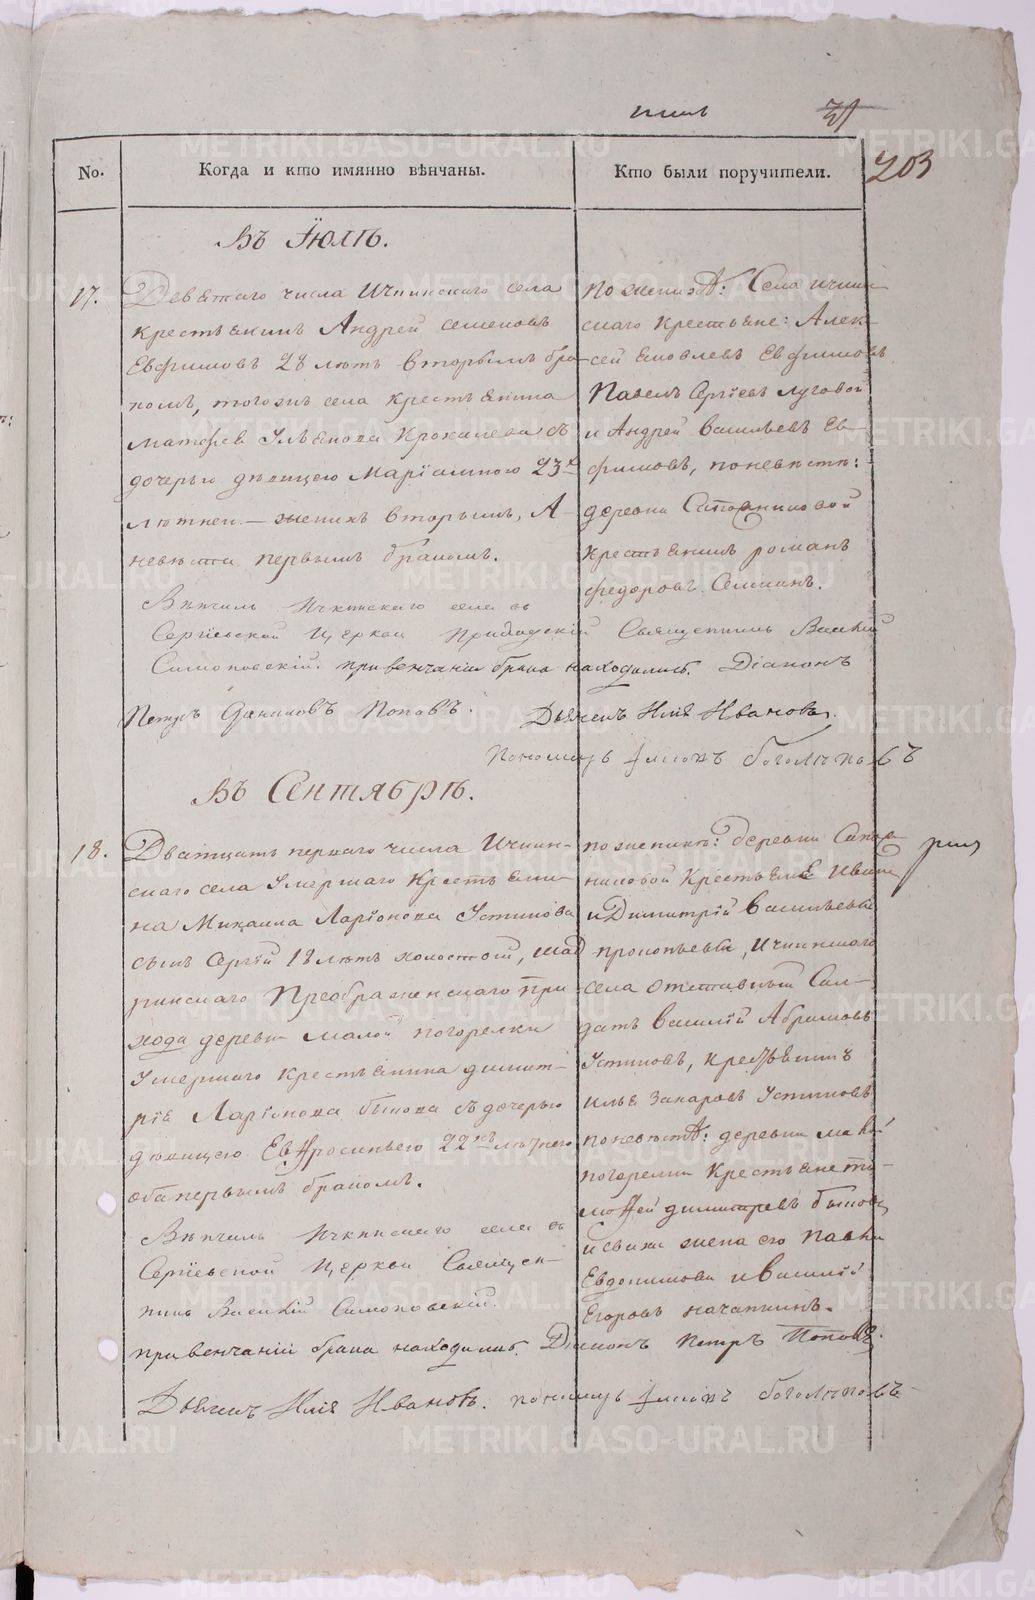 203
No.
Когда и кто имянно вѣнчаны.
Кто были поручители.
Въ Іюлѣ.
17.
Девятаго числа Ичкинскаго села
крестьянинъ Андрей Семеновъ
Евфимовъ 28 лѣтъ вторымъ бра-
комъ, тогожъ села крестьянина
Матфея Ульянова Крохалева съ
дочерью дѣвицею Маріамною 23х
лѣтней — женихъ вторымъ, А
невѣста первымъ бракомъ.
По женихѣ: Села Ичкин-
скаго крестьяне: Алек-
сей Яковлевъ Евфимовъ
Павелъ Сергіевъ Луговой
и Андрей Васильевъ Ев-
фимовъ, по невѣстѣ:
деревни Сапожниковой
крестьянинъ Романъ
Федоровъ
Вѣнчалъ Ичкинскаго села въ
Сергіевской церкви приходскій Священникъ Василій
Симоновскій. при венчаніи брака находились. Діаконъ
Петръ Даниловъ Поповъ. Дьячекъ Илія Ивановъ.
Пономарь Боголѣповъ
Въ Сентябрѣ.
18.
Дватцать перваго числа Ичкин-
скаго села умершаго крестьяни-
на Михаила Ларіонова Устинова
сынъ Сергій 18 лѣтъ холостой, Шад
ринскаго Преображенскаго при
хода деревни Малой погорелки
умершаго крестьянина Димит-
рія Ларіонова Быкова съ дочерью
дѣвицею Евфросиньею 22хъ лѣтнею
оба первымъ бракомъ.
по женихѣ: деревни Сапож
никовой крестьянѣ Иванъ
и Димитрій Васильевы
прокопьевы, Ичкинскаго
села отставный Сол-
датъ Василій Абрамовъ
Устиновъ, крестьянинъ
Илья Захаровъ Устиновъ
по невѣстѣ: деревни малой
погорелки крестьяне ти-
мофей димитревъ быковъ
и сваха жена его
Евдокимова и Василій
Егоровъ
Вѣнчалъ Ичкинскаго села въ
Сергіевской церкви Священ-
никъ Василій Симоновскій.
при венчаніи брака находились. Діаконъ Петръ Поповъ.
Дьячекъ Илія Ивановъ. пономарь Боголѣповъ
METRIKI.GASO-URAL.RU